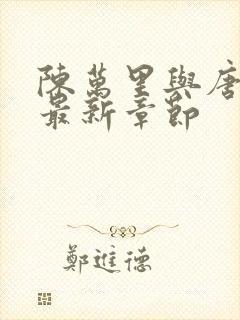 陳萬里與唐
最新章節
鄭進德